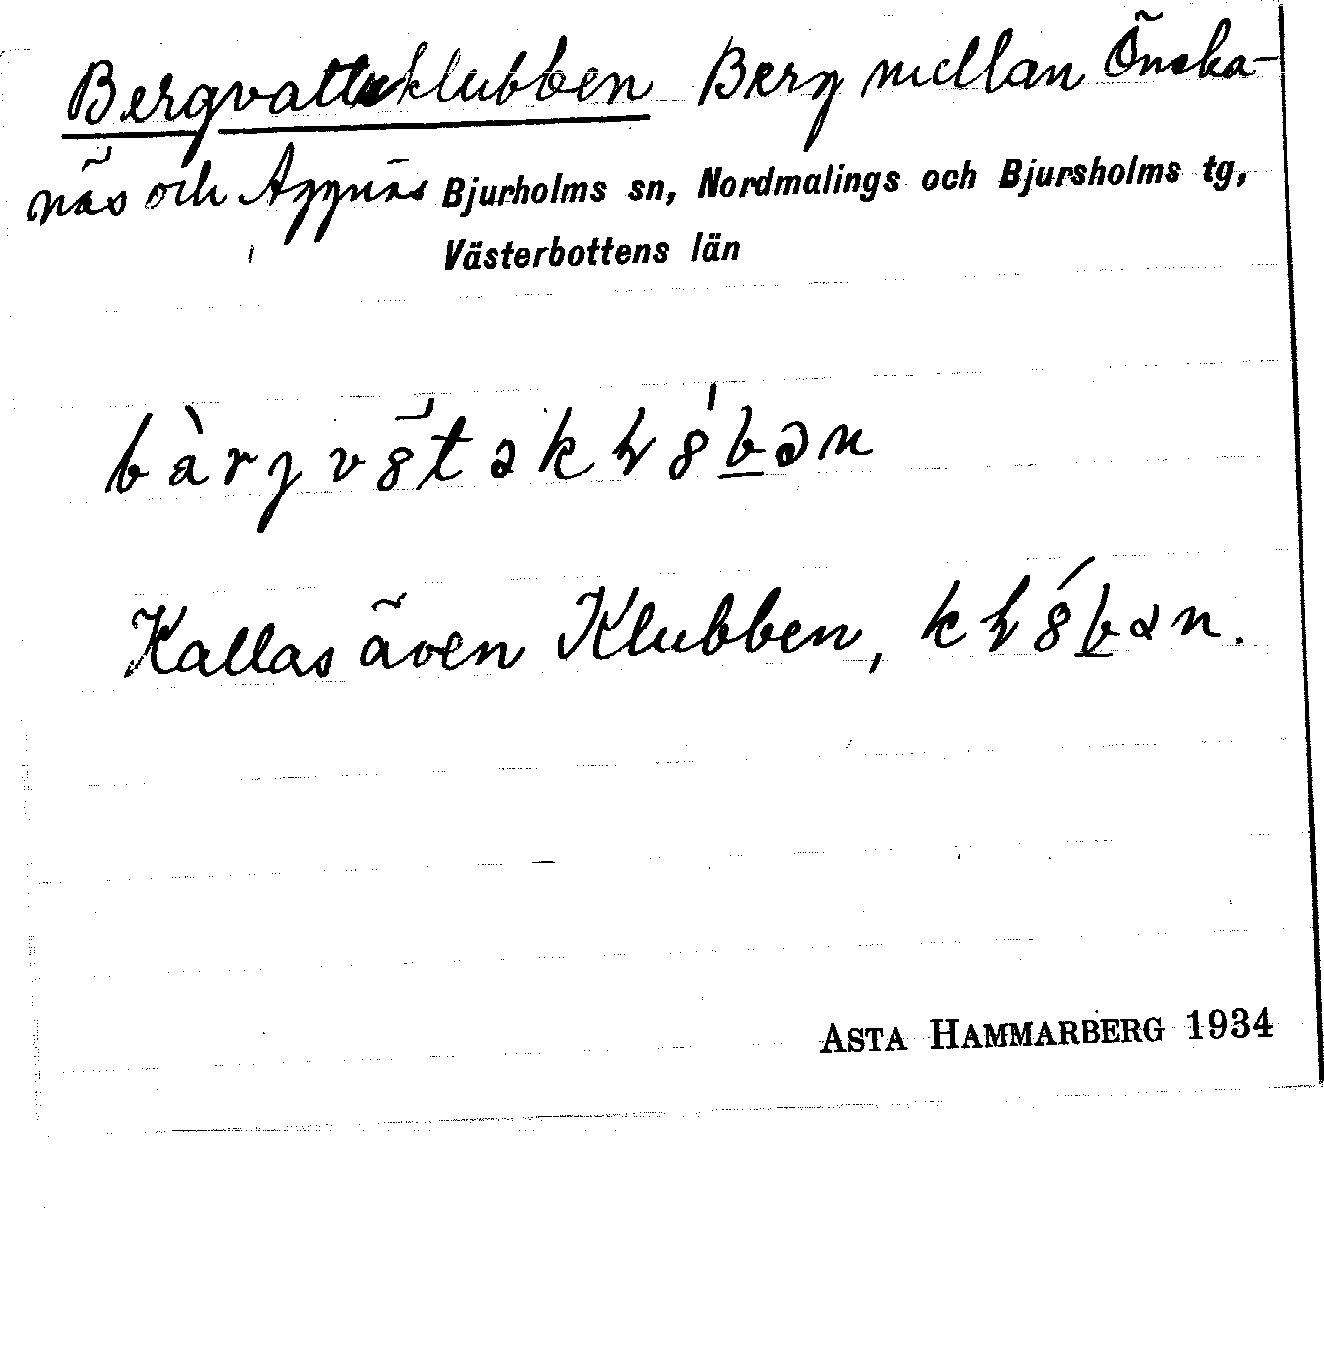 Bergvattuklubben Berg mellan Önska-
näs och Agnäs Bjurholms sn, Nordmalings och Bjursholms tg,
Västerbottens län
Kallas även Klubben,
ASTA HAMMARBERG 1934